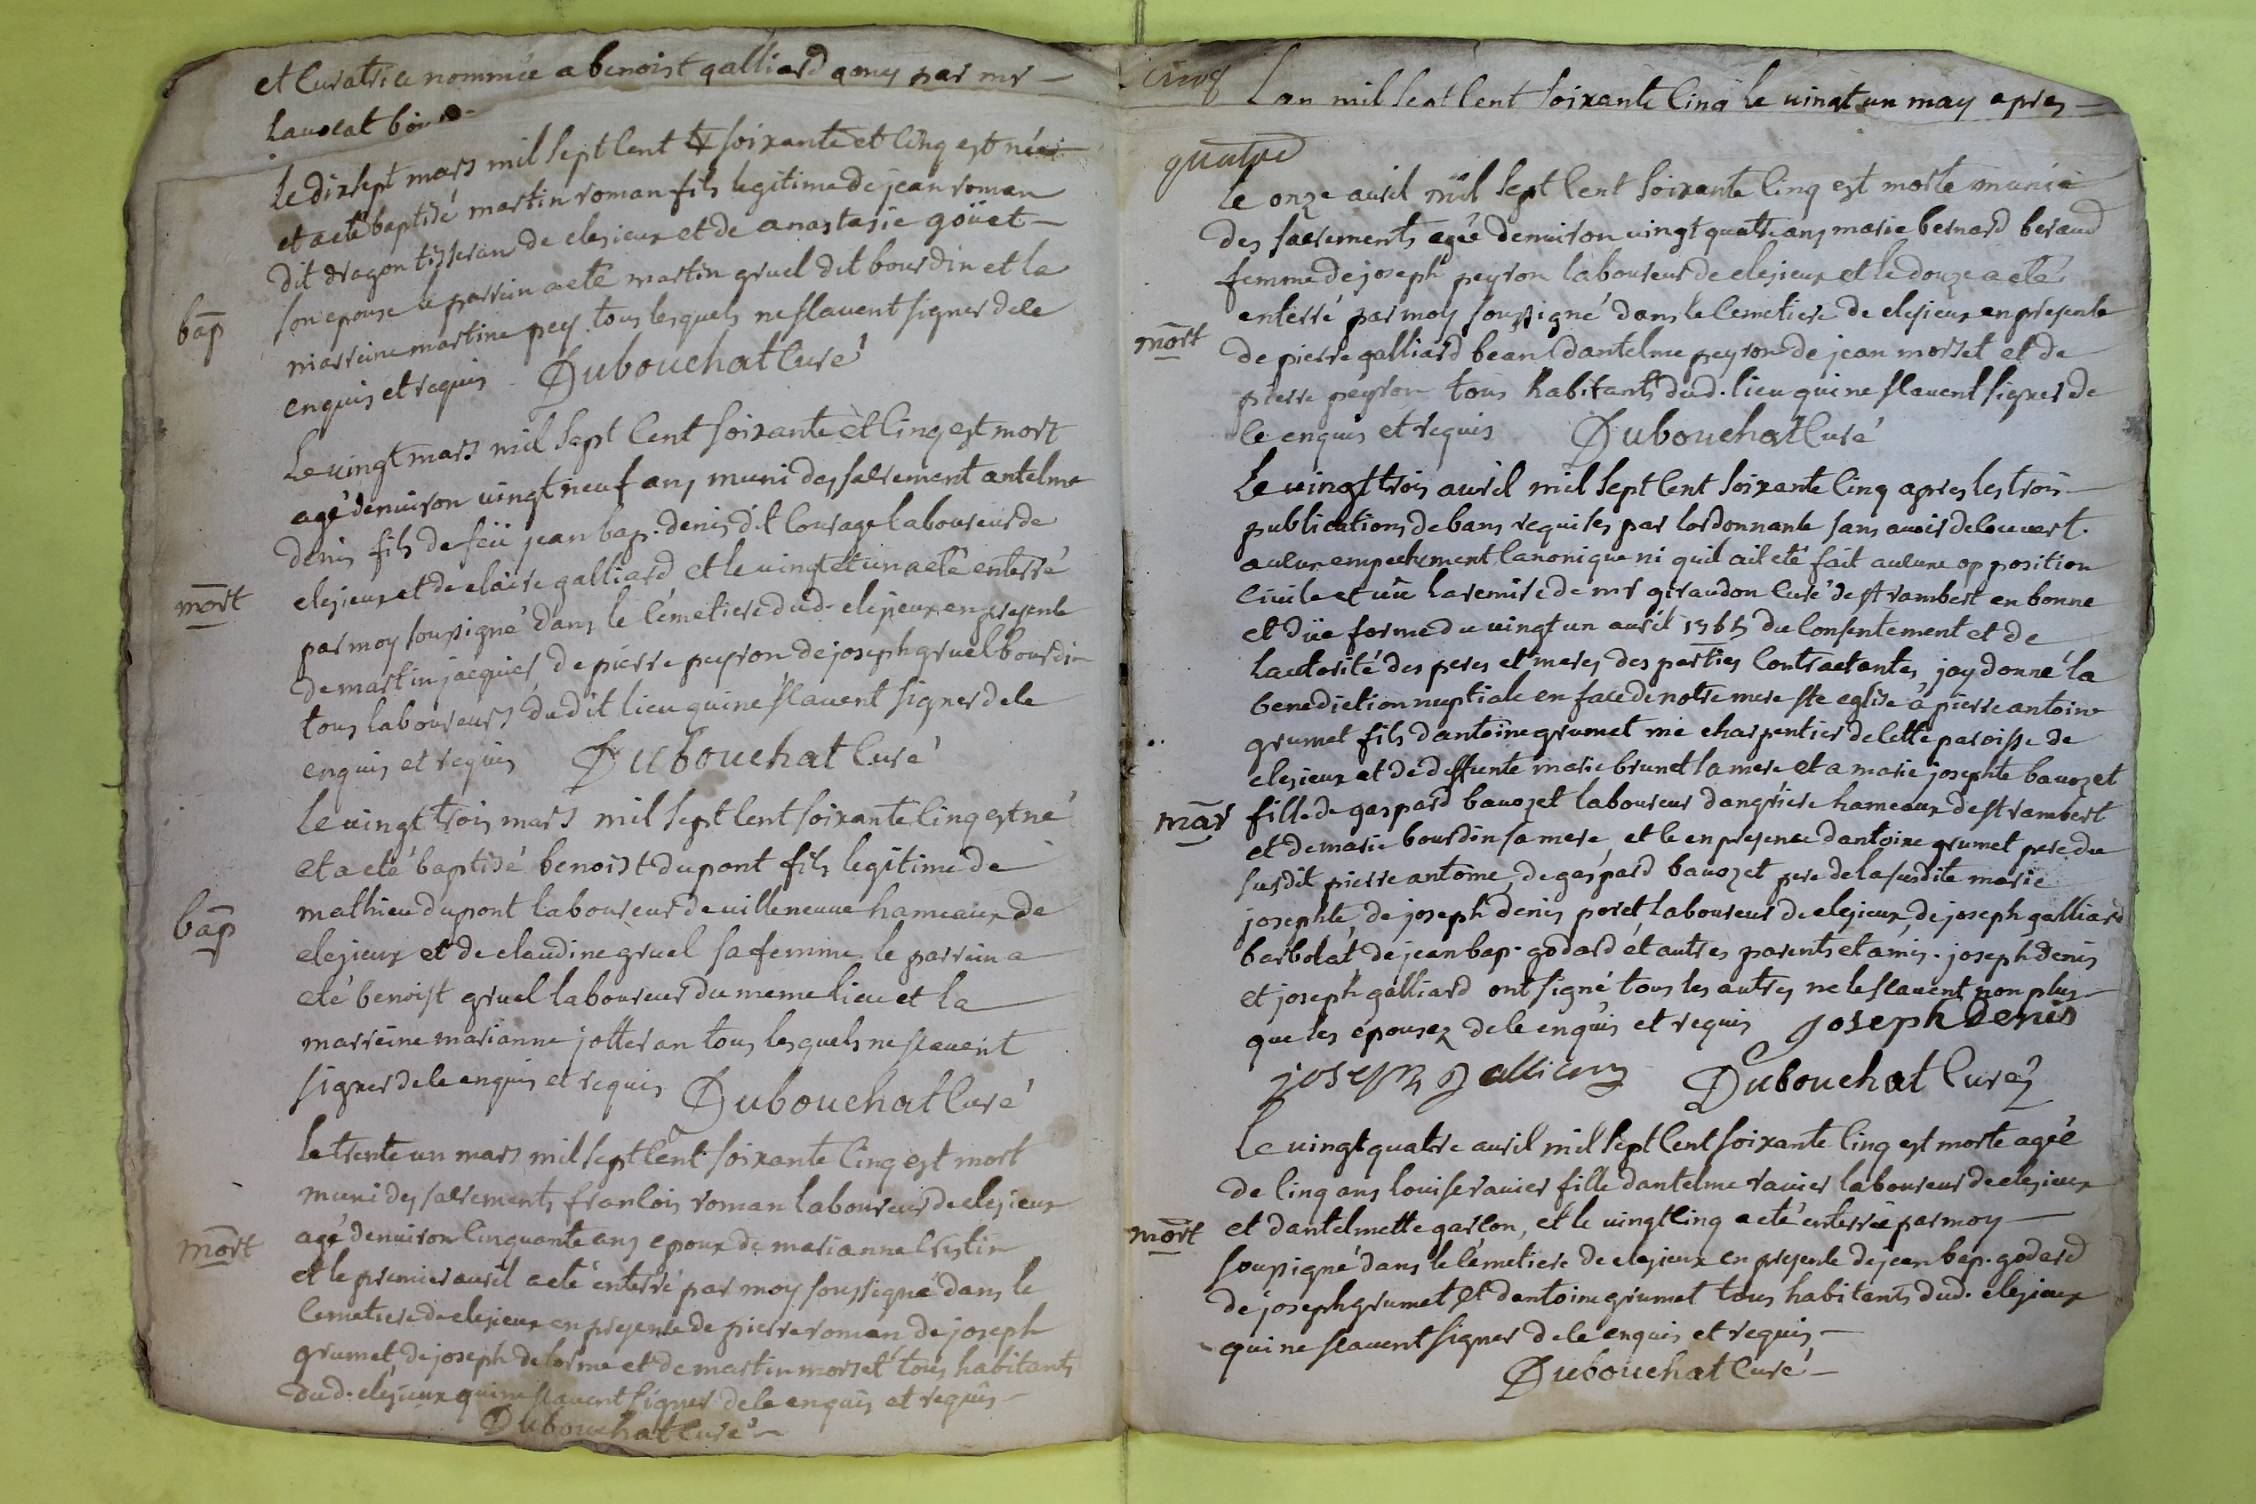 et Curatrice nommée a benoist galliard gony par mr
lavocat
bap
le dix sept mars mil sept cent soixante et cinq est né
et a eté baptisé martin roman fils legitime de jean roman
dit dragon tisseran de clesieux et de anastasie goüet
son epouse le parrein a eté martin gruel dit bourdin et la
marreine martine pey tous lesquels ne scavent signer de ce
enquis et requis Dubouchat Curé
mort
Le vingt mars mil sept cent soixante et cinq est mort
agé denviron vingt neuf ans muni des sacrement antelme
denis fils de feü jean bap. denis dit courage laboureur de
clesieux et de claire galliard et le vingt et un a eté enterré
par moy soussigné dans le cémetiere dud. clesieux en presence
de martin jacques, de pierre peyron de joseph gruel bourdin
tous laboureurs dudit lieu qui ne scavent signer de ce
enquis et requis Dubouchat Curé
bap
le vingt trois mars mil sept cent soixante cinq est né
et a eté baptisé benoist dupont fils legitime de
mathieu dupont laboureur de villeneuve hameaux de
clesieux et de claudine gruel sa femme le parrein a
eté benoist gruel laboureur du meme lieu et la
marreine marianne jotteran tous lesquels ne scavent
signer de ce enquis et requis Dubouchat Curé
mort
le trente un mars mil sept cent soixante cinq est mort
muni des sacrements francois roman laboureur de clesieux
agé denviron cinquante ans epoux de marianne
et le premier avril a eté enterré par moy soussigné dans le
cemetiere de clesieux en presence de pierre roman de joseph
grumet, de joseph delorme et de martin morset tous habitants
dud. clesieux qui ne scavent signer de ce enquis et requis
Dubouchat Curé
cinq
Lan mil sept cent soixante cinq le vingt un may apres
quatre
mort
le onze avril mil sept cent soixante cinq est morte munie
des sacrements agée denviron vingt quatre ans marie bernard beraud
femme de joseph peyron laboureur de clesieux et le douze a eté
enterré par moy soussigné dans le cemetiere de clesieux en presence
de pierre galliard bean dantelme peyron de jean morset et de
pierre peyron tous habitants dud. lieu qui ne scavent signer de
ce enquis et requis Dubouchat Curé
mar
Le vingt trois avril mil sept cent soixante cinq apres les trois
publications de bans requises par lordonnance sans avoir decouvert
aucun empechement canonique ni quil ait eté fait aucune opposition
civile et vû la remise de mr giraudon Curé de st rambert en bonne
et düe forme du vingt un avril 1765 du consentement et de
lautorité des peres et meres des parties contractantes, jay donné la
benediction nuptiale en face de notre mere ste eglise a pierre antoine
grumet fils dantoine grumet me charpentier de cette paroisse de
clesieux et de deffunte marie brunet sa mere et a marie josephte bavozet
fille de gaspard bavozet laboureur dangriere hameaux de st rambert
et de marie bourdin sa mere, et ce en presence dantoine grumet pere du
susdit pierre antoine, de gaspard bavozet pere de la susdite marie
josephte, de joseph denis poret, laboureur de clesieux, de joseph galliard
barbolat de jean bap. godard et autres parents et amis. joseph denis
et joseph galliard ont signé tous les autres ne le scavent non plus
que les epousez de ce enquis et requis joseph denis
joseph Dubouchat Curé
mort
Le vingt quatre avril mil sept cent soixante cinq est morte agée
de cinq ans louise ravier fille dantelme ravier laboureur de clesieux
et dantelmette garcon, et le vingt cinq a eté enterrée par moy
soussigné dans le cémetiere de clesieux en presence de jean bap. godard
de joseph grumet, et dantoine grumet tous habitants dud. clesieux
qui ne scavent signer de ce enquis et requis
Dubouchat Curé